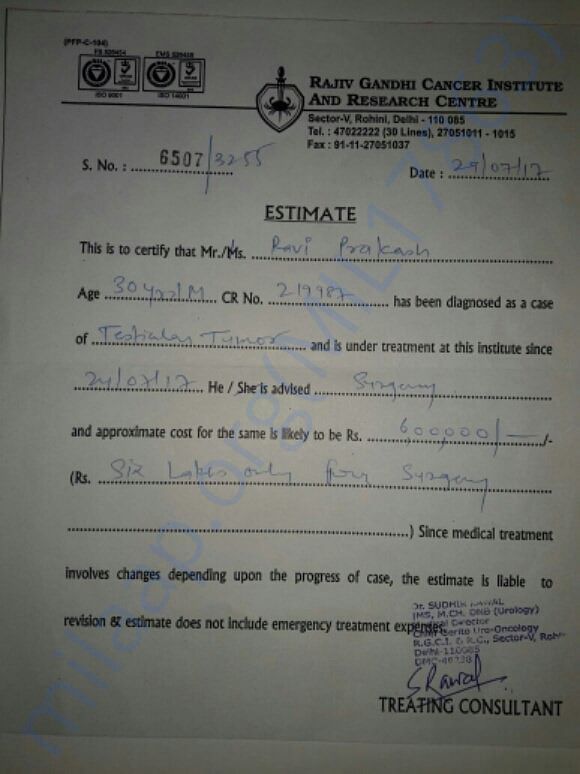 (PFP-C-104)
FS 520454 EMS 520455
ISO 9001 ISO 14001
RAJIV GANDHI CANCER INSTITUTE
AND RESEARCH CENTRE
Sector-V, Rohini, Delhi - 110 085
Tel. : 47022222 (30 Lines), 27051011 - 1015
Fax : 91-11-27051037
S. No. : 6507/3255
Date : 29/07/17
ESTIMATE
This is to certify that Mr./Ms. Ravi Prakash
Age 30yrs/M CR No. 219987 has been diagnosed as a case
of Testicular Tumor and is under treatment at this institute since
24/07/17 He / She is advised Surgery
and approximate cost for the same is likely to be Rs. 600,000/- /-
(Rs. Six Lakes only for Surgery
) Since medical treatment
involves changes depending upon the progress of case, the estimate is liable to
revision & estimate does not include emergency treatment expenses.
Dr. SUDHIR RAWAL
MS, M.CH, DNB (Urology)
Medical Director
Chief Genito Uro-Oncology
R.G.C.I. & R.C., Sector-V, Rohini
Delhi-110085
SRawal
TREATING CONSULTANT